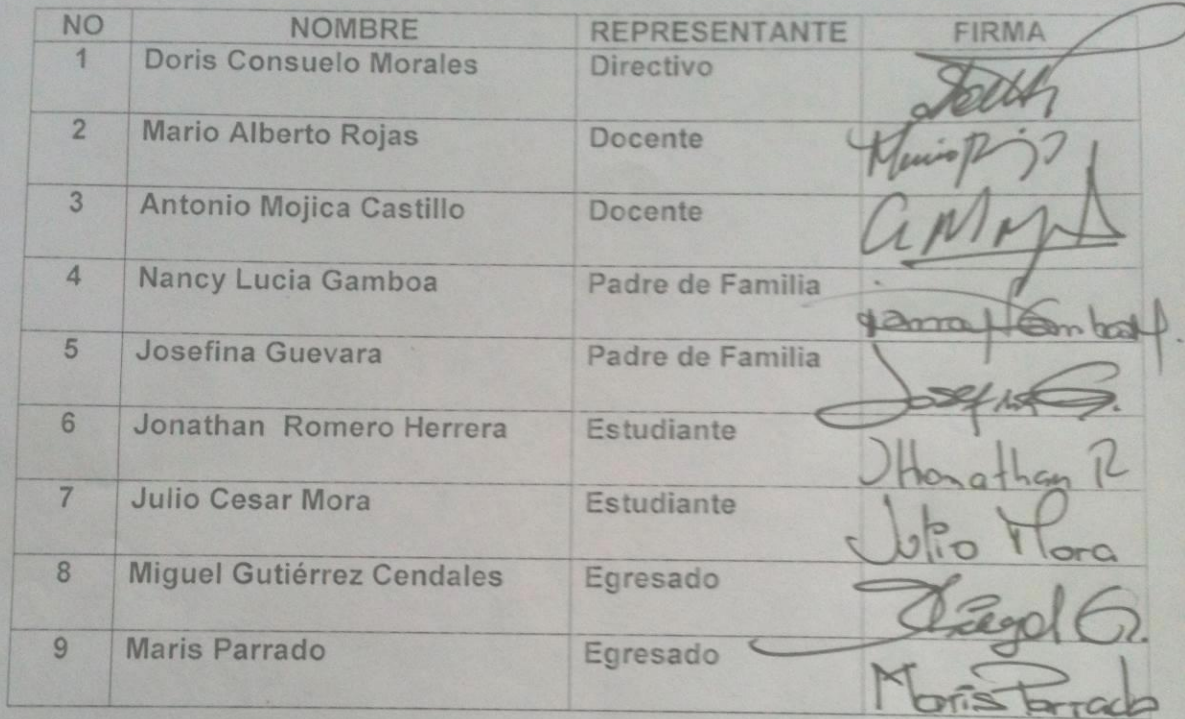 NO NOMBRE REPRESENTANTE FIRMA
1 Doris Consuelo Morales Directivo
2 Mario Alberto Rojas Docente
3 Antonio Mojica Castillo Docente
4 Nancy Lucia Gamboa Padre de Familia
5 Josefina Guevara Padre de Familia
6 Jonathan Romero Herrera Estudiante JHonathan R
7 Julio Cesar Mora Estudiante Julio Mora
8 Miguel Gutiérrez Cendales Egresado
9 Maris Parrado Egresado Maris Parrado